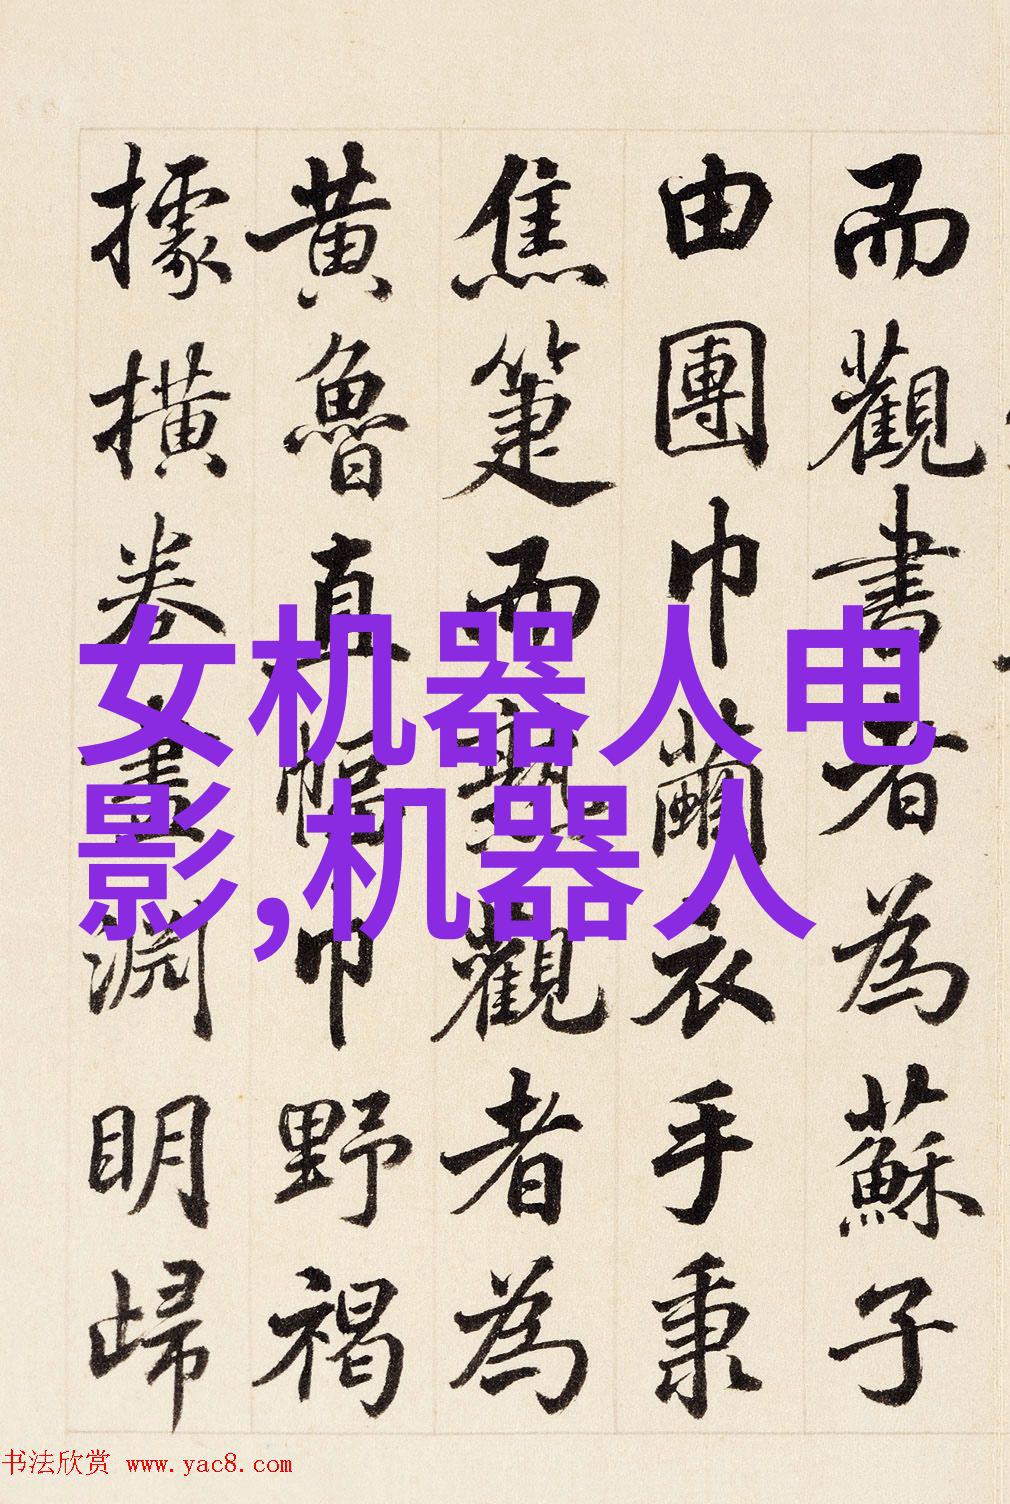 而觀書者為蘇子
由團巾繭衣手秉
焦箑而熟觀者為
黃魯直幅巾野褐
據橫卷畫淵明歸
女机器人电
影,机器人
书法欣赏 www.yac8.com